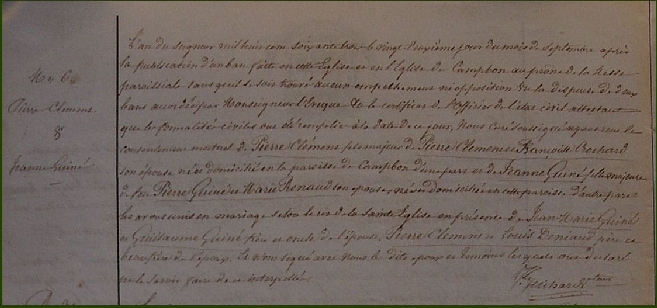 L'an du seigneur mil huit cent soixante trois le vingt deuxième jour du mois de septembre après
la publication d'un ban faite en cette Eglise et en l'Eglise de Campbon au prône de la Messe
paroissiale sans qu'il se soit trouvé aucun empêchement ni opposition Vu la dispense de deux
bans accordée par Monseigneur l'Evêque Vu le certificat de l'officier de l'état civil attestant
que les formalités civiles ont été remplies à la date de ce jour, Nous Curé soussigné avons reçu le
consentement mutuel de Pierre Clémens fils majeur de Pierre Clemens et Françoise Crochard
son épouse né et domicilié en la paroisse de Campbon d'une part et de Jeanne Guiné fille majeure
de feu Pierre Guiné et Marie Renaud son épouse née et domiciliée en cette paroisse d'autre part
les avons unis en mariage selon le rit de la Sainte Eglise en présence de Jean Marie Guiné
et Guillaume Guiné frère et oncle de l'épouse, Pierre Clemens et Louis Deniaud père et
beau frère de l'époux. Se sont signé avec nous les dits époux et témoins les quels ont déclaré
ne le savoir faire de ce interpellés
Mar
Pierre Clemens
&
Jeanne Guiné